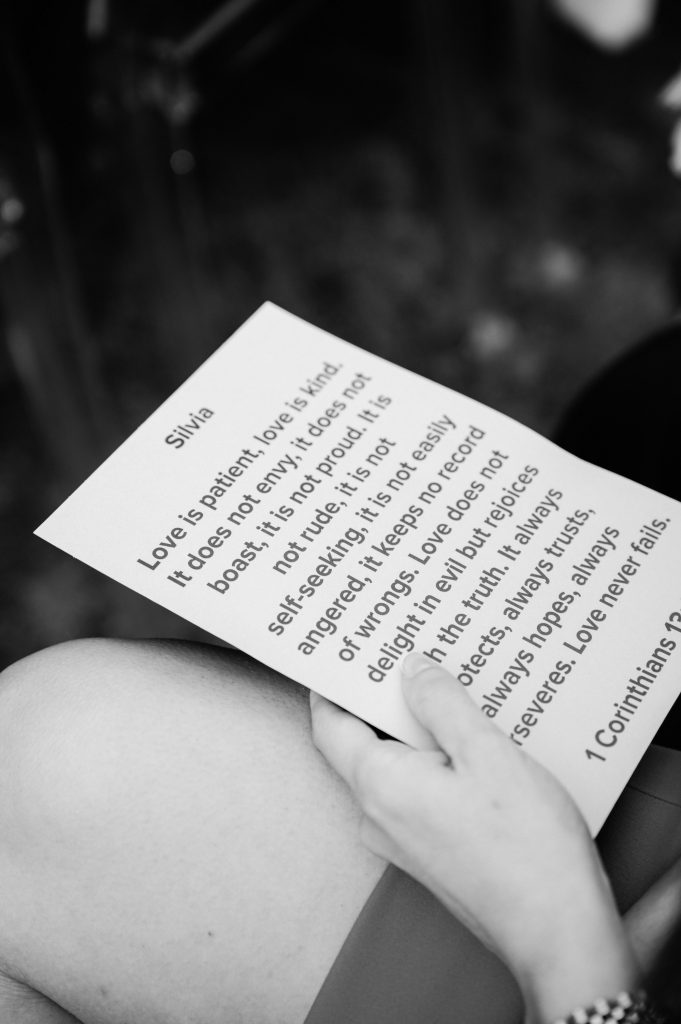 Silvia
Love is patient, love is kind.
It does not envy, it does not
boast, it is not proud. It is
not rude, it is not
self-seeking, it is not easily
angered, it keeps no record
of wrongs. Love does not
delight in evil but rejoices
h the truth. It always
otects, always trusts,
always hopes, always
rseveres. Love never fails.
1 Corinthians 13